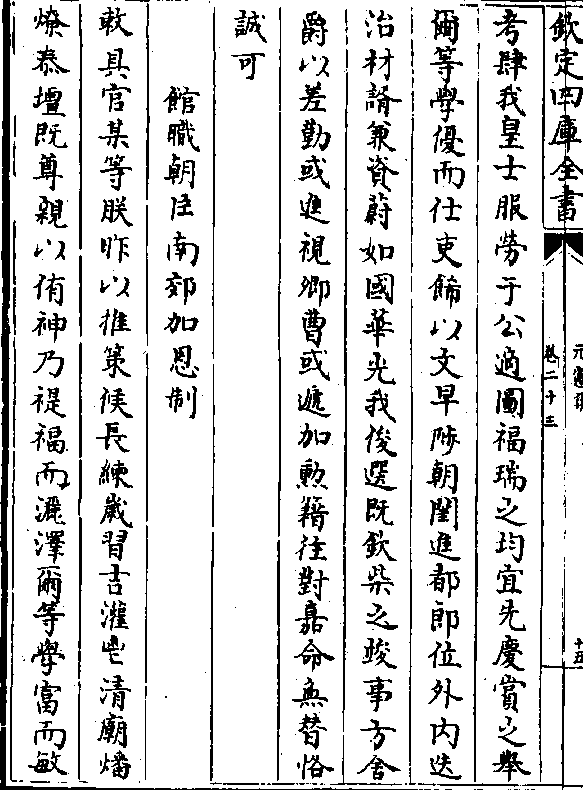 欽定四庫全書
卷二十三
考肆我皇士服勞于公適圖福瑞之均宜先慶賞之舉
爾等學優而仕吏飾以文早陟朝閨進都郎位外内迭
治材諝兼資蔚如國華光我俊選既欽柴之竣事方舍
爵以差勤或進視卿曹或遞加勲籍往對嘉命無替恪
誠可
館職朝臣南郊加恩制
敕具官某等朕昨以推策候長練歲習吉灌鬯清廟燔
燎泰壇既尊親以侑神乃禔福而灑澤爾等學富而敏